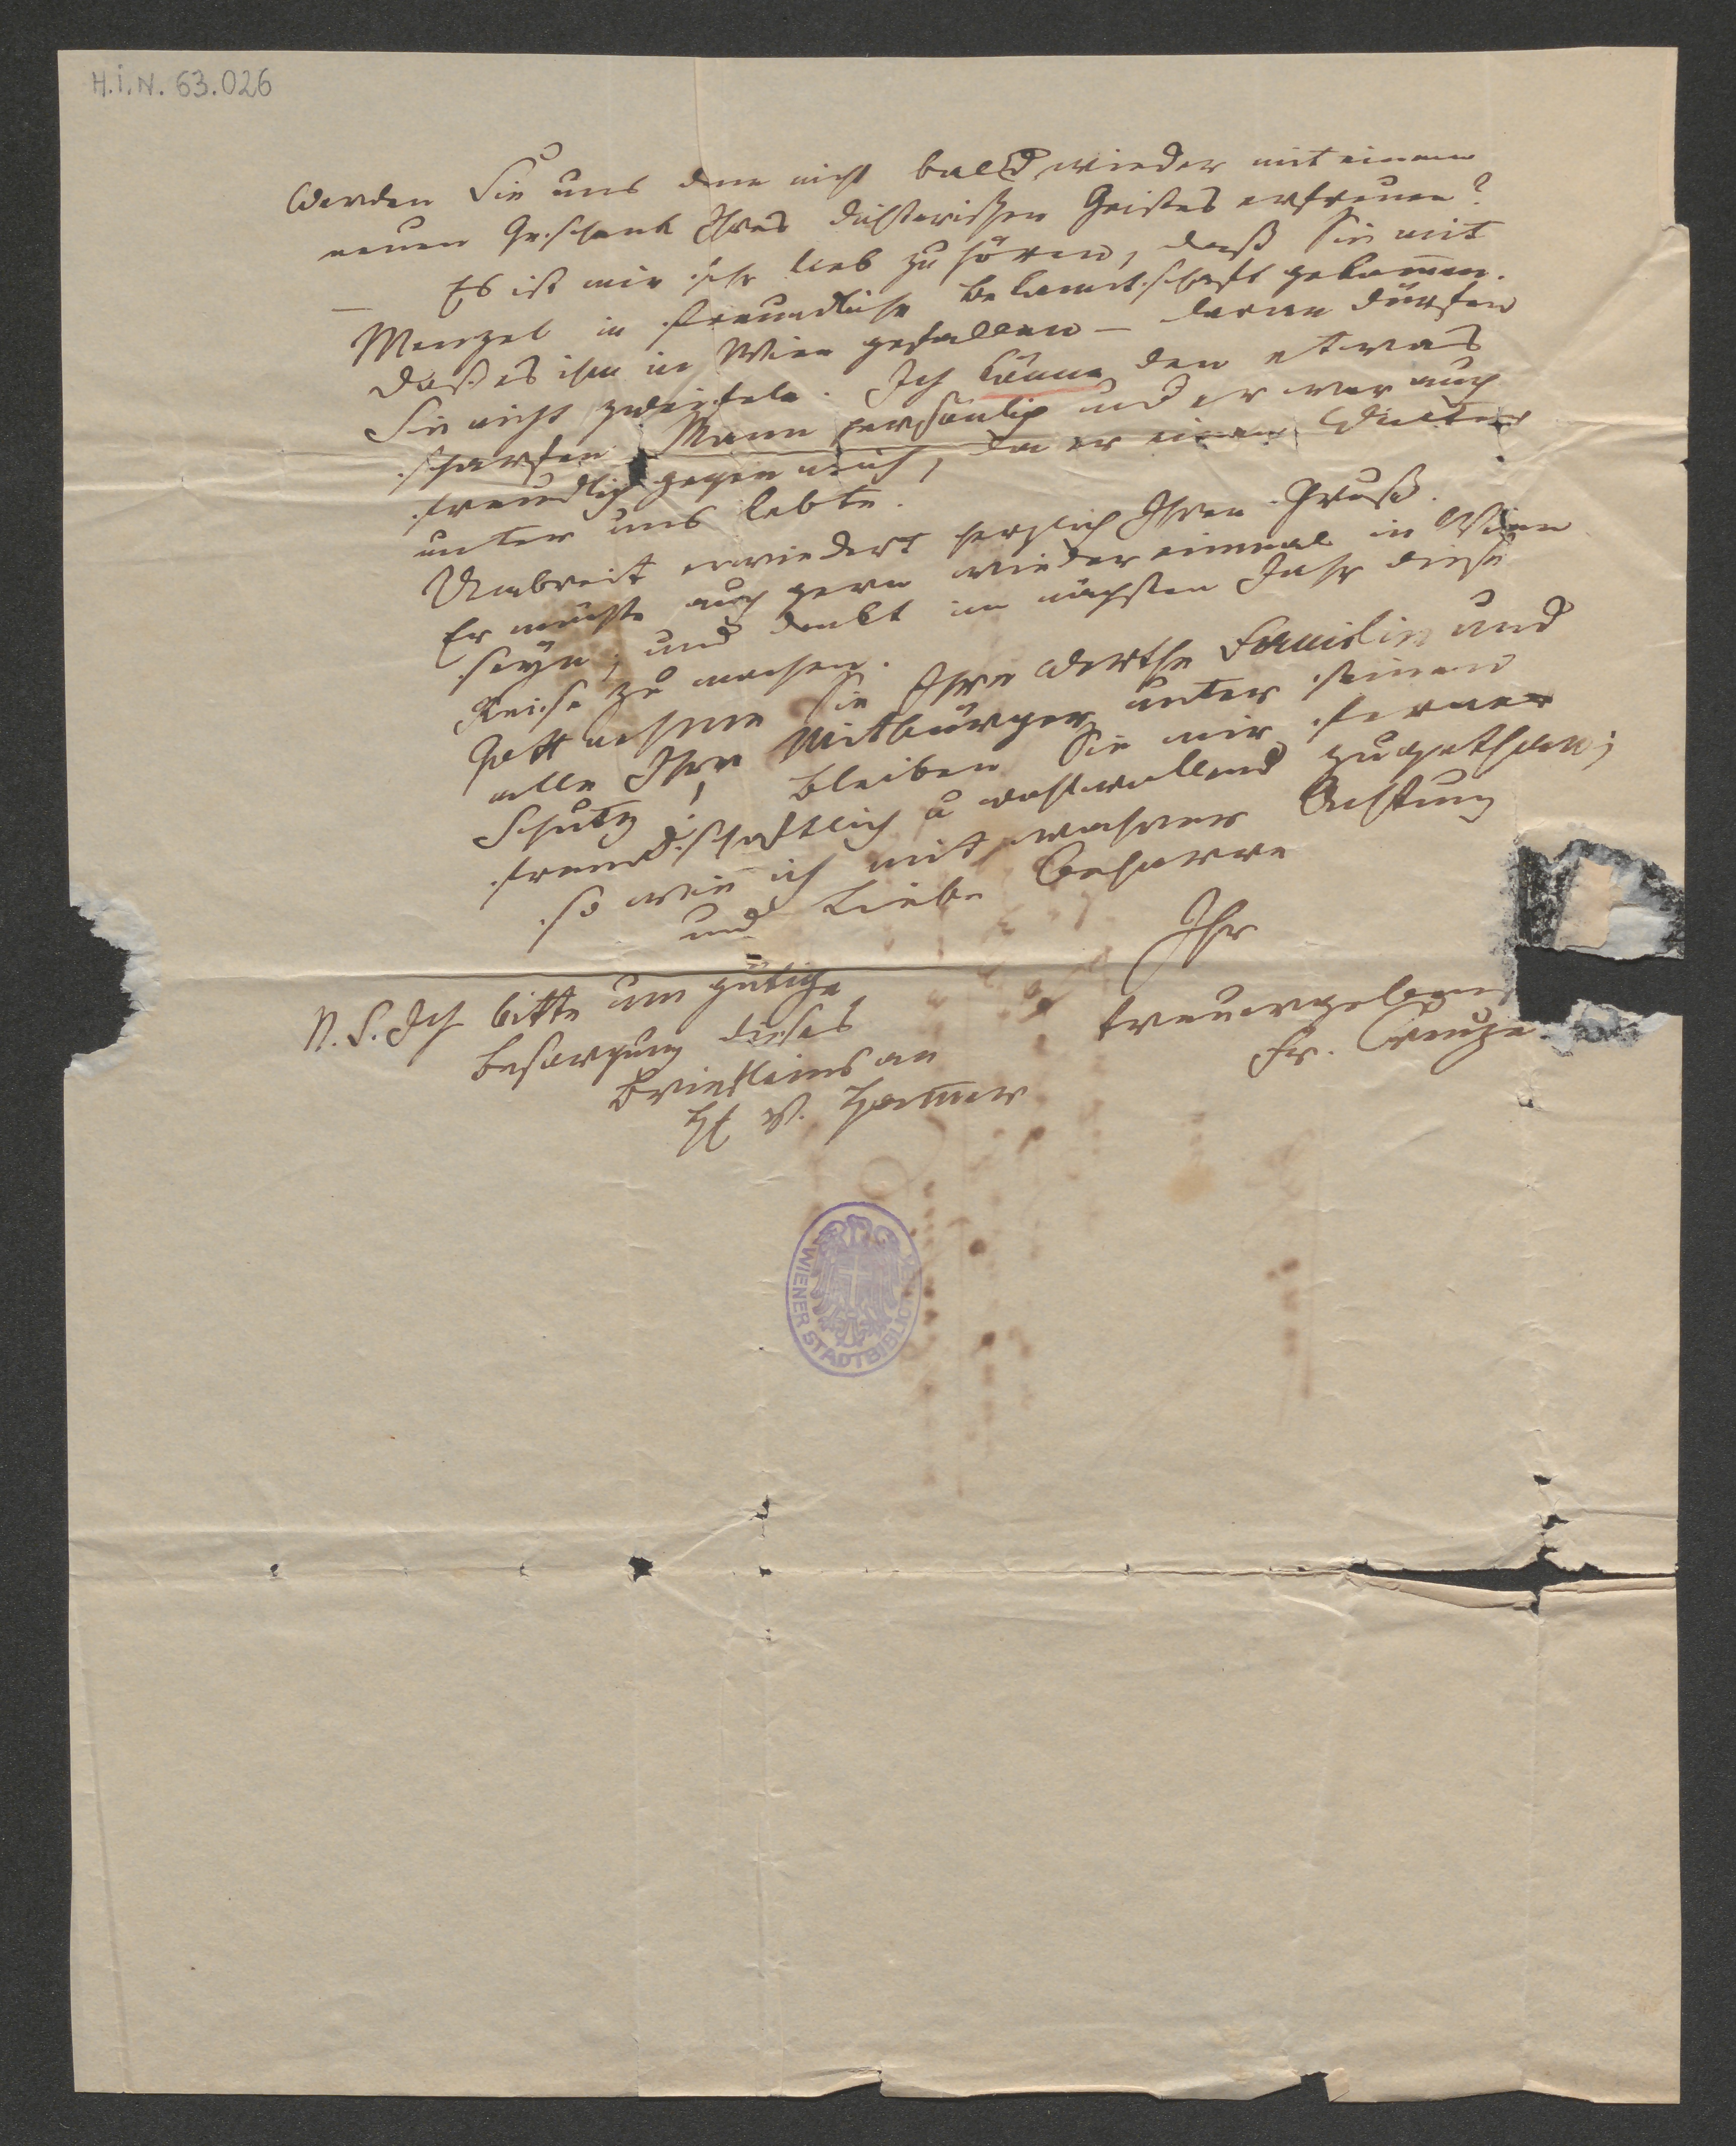 H.I.N. 63.026
Werden Sie uns denn nicht bald wieder mit einem
neuen Geschenk Ihres dichterischen Geistes erfreuen?
– Es ist mir sehr lieb zu hören, daß Sie mit
Menzel in freundliche Bekanntschaft gekommen.
Daß es ihm in Wien gefallen – daran dürfen
Sie nicht zweifeln. Ich kenne den etwas
scharfen Mann persönlich und er war auch
freundlich gegen mich, da er einen Winter
unter uns lebte.
Umbreit erwiedert herzlich Ihren Gruß.
Er möchte auch gern wieder einmal in Wien
seyn, und denkt im nächsten Jahr diese
Reise zu machen.
Gott nehme Sie Ihre werthe Familie und
alle Ihre Mitbürger unter seinen
Schutz! bleiben Sie mir ferner
freundschaftlich u wohlwollend zugethan;
so wie ich mit wahrer Achtung
und Liebe beharre
Ihr
treuergebener
Fr. Creuze
N. S. Ich bitte um gütige
Besorgung dieses
Briefleins an
H v. Hammer
WIENER STADTBIBLIOT